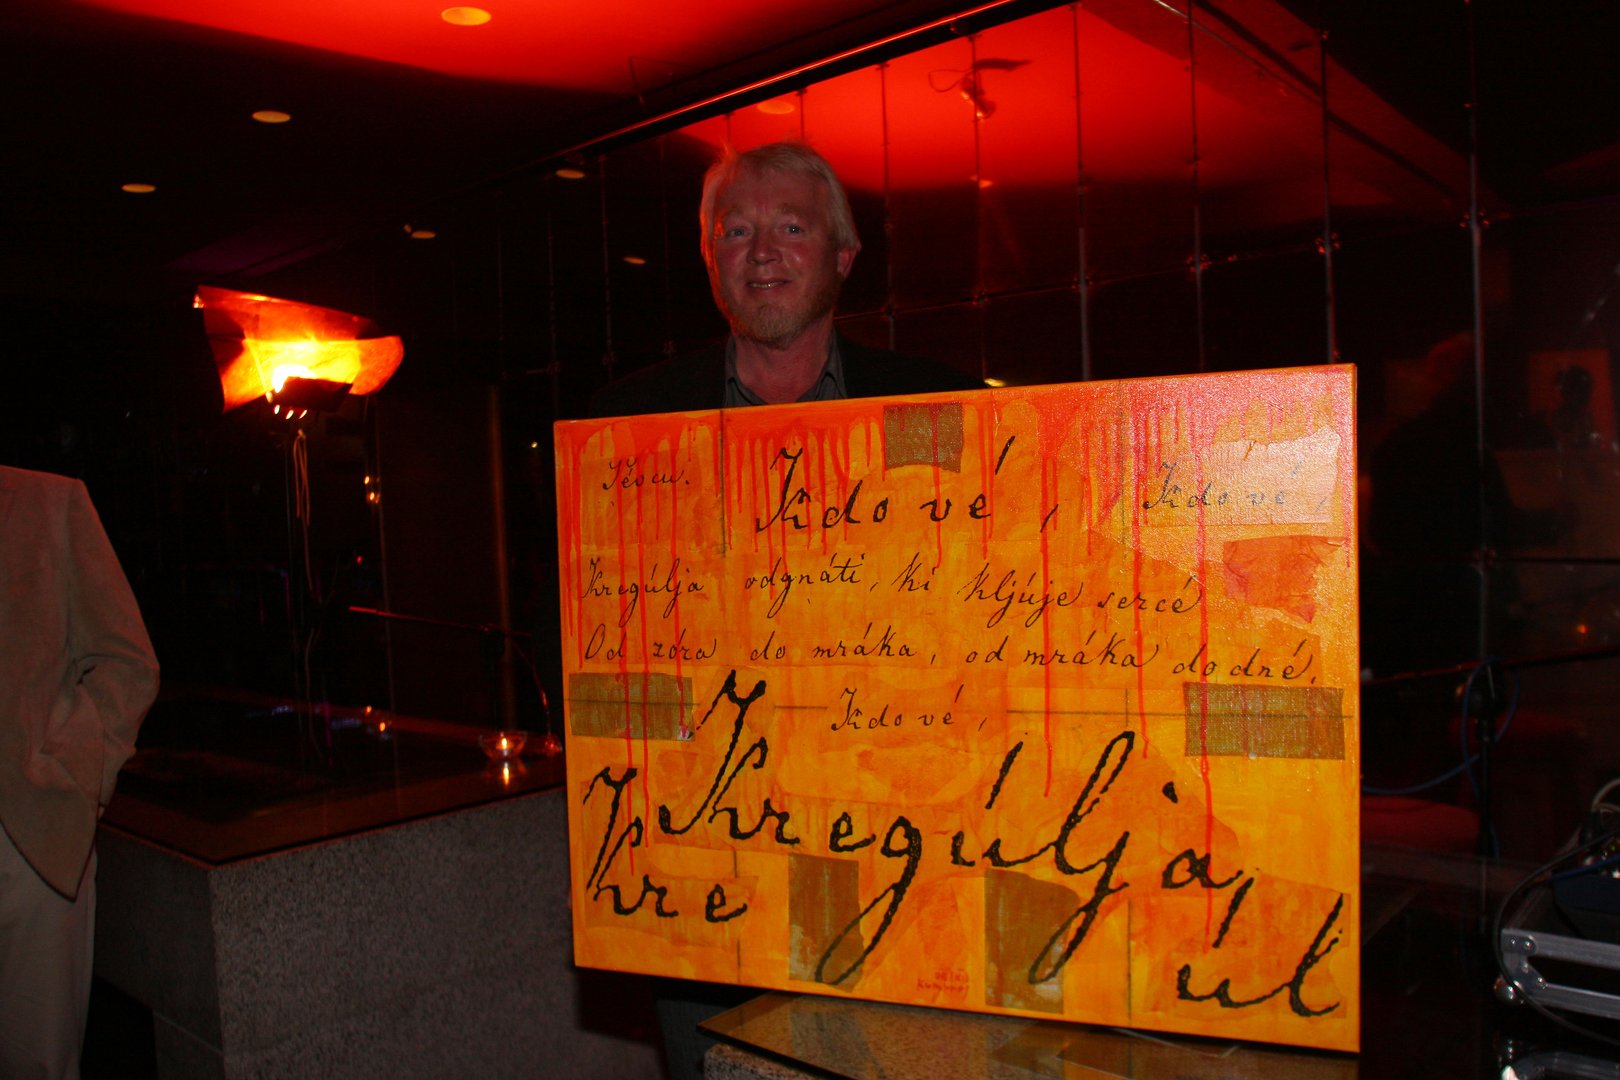 Kdo vé, Kdo vé,
Kregúlja odgnáti, ki kljúje sercé
Od zóra do mráka, od mráka do dné.
Kdo vé,
Kregúlja,
Kre úl